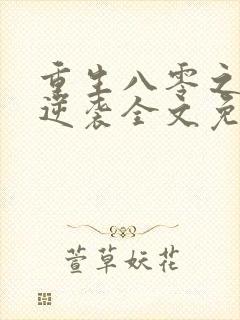 重生八零之
逆袭全文免
萱草妖花